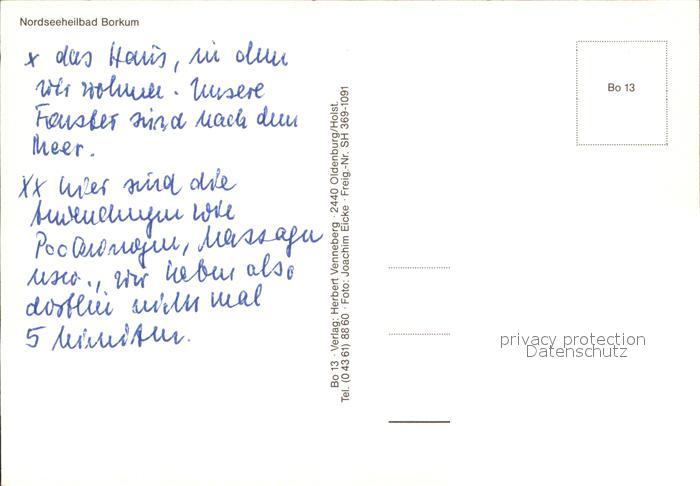 Nordseeheilbad Borkum
x das Haus, in dem
wir wohnen. Unsere
Fenster sind nach dem
Meer.
XX hier sind die
Anwendungen wie
Massagen
usw., wir haben also
dorthin nicht mal
5 Minuten.
Bo 13 · Verlag: Herbert Venneberg · 2440 Oldenburg/Holst.
Tel. (0 43 61) 88 60 · Foto: Joachim Eicke · Freig.-Nr. SH 369-1091
Bo 13
privacy protection
Datenschutz